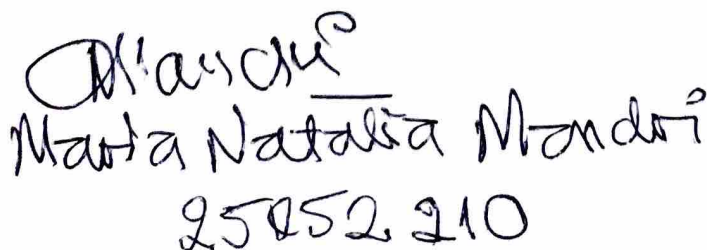 Maria Natalia Mandri
25852210